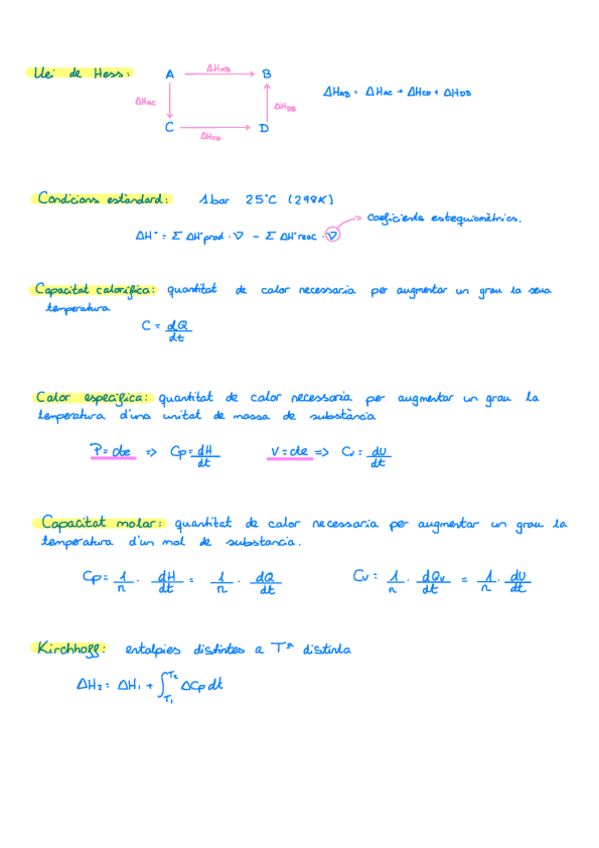 Llei de Hess:
A ΔHAB B
ΔHAB = ΔHAC + ΔHCD + ΔHDB
ΔHAC
ΔHDB
C ΔHCD D
Condicions estàndard: 1 bar 25°C (298K)
coeficients estequiomètrics.
ΔH° = Σ ΔH°prod · ν - Σ ΔH°reac · ν
Capacitat calorífica: quantitat de calor necessaria per augmentar un grau la seua
temperatura
C = dQ/dt
Calor específica: quantitat de calor necessaria per augmentar un grau la
temperatura d'una unitat de massa de substància
P = cte => Cp = dH/dt V = cte => Cv = dU/dt
Capacitat molar: quantitat de calor necessaria per augmentar un grau la
temperatura d'un mol de substancia.
Cp = 1/n · dH/dt = 1/n · dQ/dt Cv = 1/n · dQv/dt = 1/n · dU/dt
Kirchhoff: entalpies distintes a Tª distinta
ΔH₂ = ΔH₁ + ∫T₁T₂ ΔCp dt